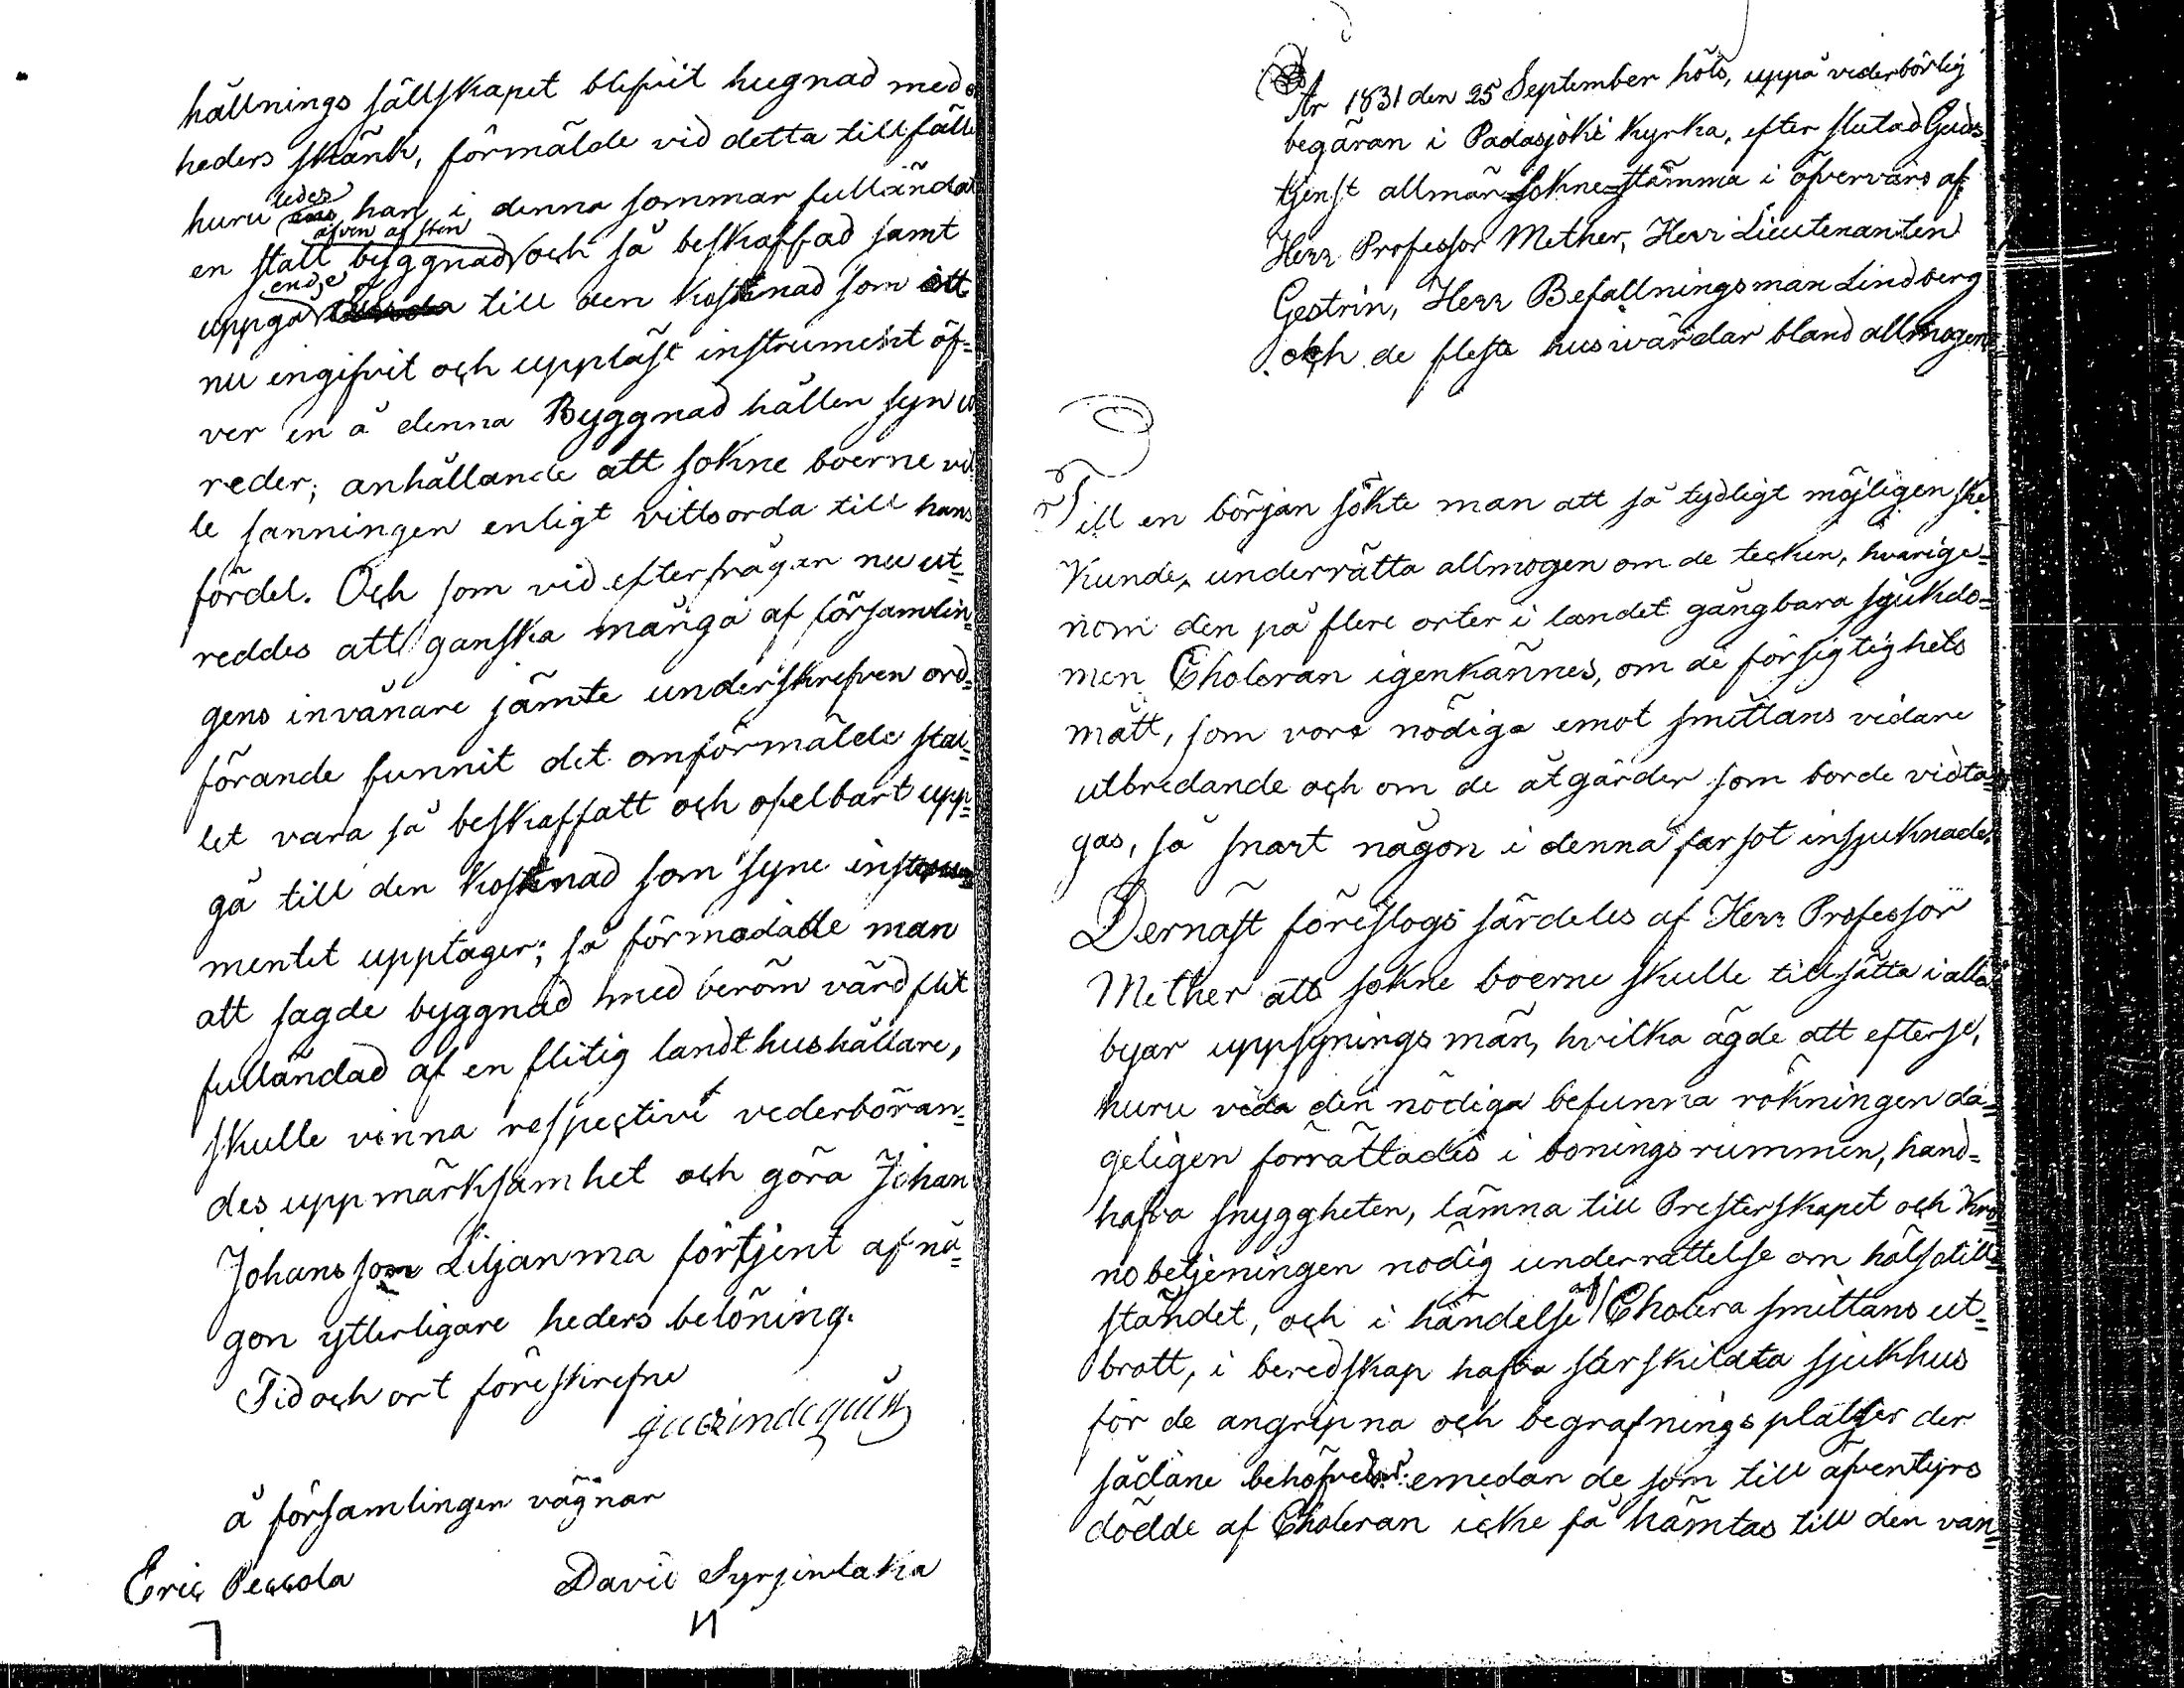 hållnings sällskapet blefvit hugnad med
heders skänk, förmälde vid detta tillfälle
huru ledes han i denna sommar fulländat
en stall byggnad äfven af sten och så beskaffad samt
uppgående till den kostnad som ett
nu ingifvit och uppläst instrument öf=
ver en å denna Byggnad hållen syn ut
reder; anhållande att sokne boerne vil
le sanningen enligt vittsorda till hans
fördel. Och som vid efterfrågan nu ut=
reddes att ganska många af församlin=
gens invånare jämte underskrefven ord=
förande funnit det omförmälde stal=
let vara så beskaffatt och ofelbart upp=
gå till den kostnad som syne instru=
mentet upptager; så förmodade man
att sagde byggnad med beröm värd flit
fulländad af en flitig landthushållare,
skulle vinna respective vederböran=
des uppmärksamhet och göra Johan
Johansson Liljanma förtjent af nå=
gon ytterligare heders belöning.
Tid och ort föreskrefne
å församlingen vägnar
Eric Peccola David Syrjintaka
År 1831 den 25 September höls, uppå vederbörlig
begäran i Padasjoki Kyrka, efter slutad Guds=
tjenst allmän Sokne=stämma i öfvervaro af
Herr Professor Mether, Herr Lieutenanten
Gestrin, Herr Befallningsman Lindberg
och de fleste husvärdar bland allmogen=
Till en början sökte man att så tydligt möjligen ske
kunde, underrätta allmogen om de tecken, hvarige=
nom den på flere orter i landet gångbara sjukdo=
men Choleran igenkännes, om de försigtighets
mått, som vore nödiga emot smittans vidare
utbredande och om de åtgärder som borde vidta=
gas, så snart någon i denna farsot insjuknade.
Dernäst föreslogs särdeles af Herr Professor
Mether att sokne boerne skulle tillsätta i alla
byar uppsynings män, hvilka ägde att efterse,
huru vida den nödiga befunna rökningen da=
geligen förrättades i bonings rummen, hand=
hafva snyggheten, lämna till Presterskapet och Kro
nobetjeningen nödig underrättelse om hälsotill=
ståndet, och i händelse af Cholera smittans ut=
brott, i beredskap hafva särskildta sjukhus
för de angripna och begrafnings platser der
sådane behöfvdes: emedan de som till äfventyrs
dödde af Choleran icke få hämtas till den van=